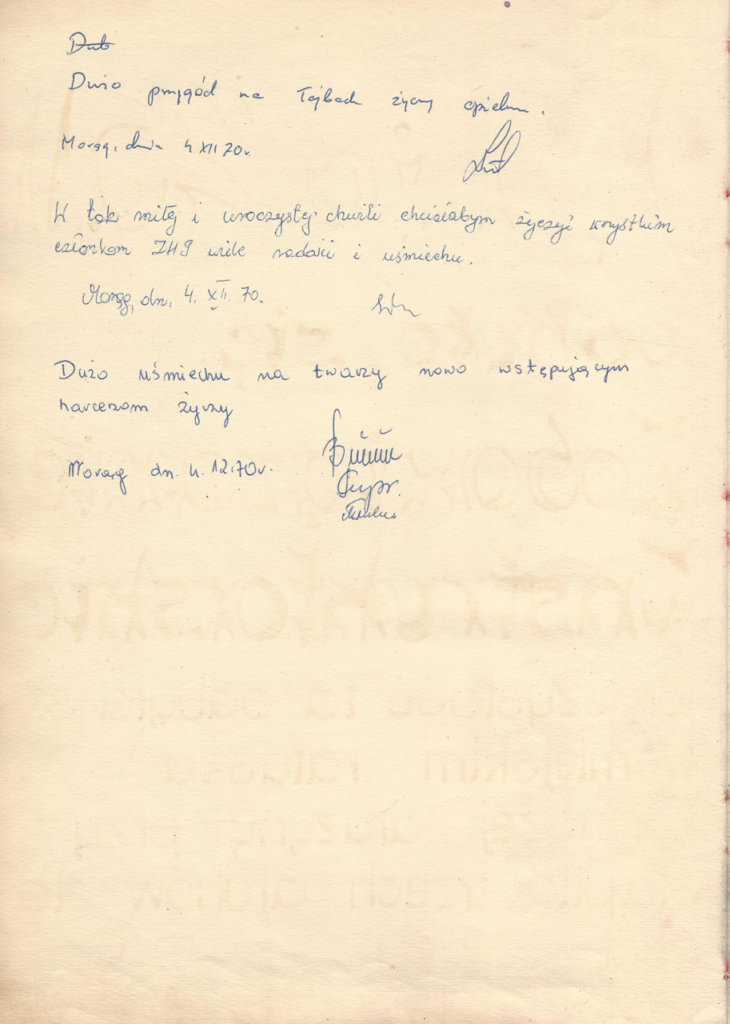 Dub
Dużo przygód na Tajbach życzy opiekun.
Morąg, dnia 4 XII 70r.
W tak miłej i uroczystej chwili chciałabym życzyć wszystkim
członkom ZHP wiele radości i uśmiechu.
Morąg, dn. 4. XII. 70.
Dużo uśmiechu na twarzy nowo wstępującym
harcerzom życzy
Morąg dn. 4. 12.70r.